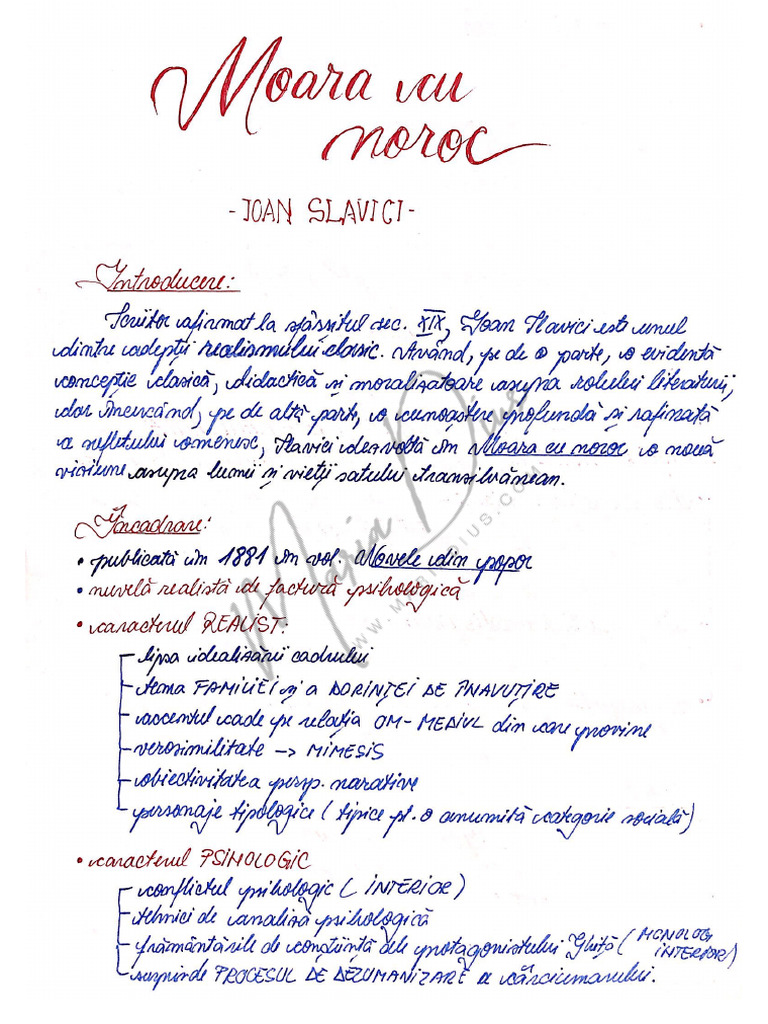 Moara cu
noroc
- IOAN SLAVICI -
Introducere:
Scriitor afirmat la sfârșitul sec. XIX, Ioan Slavici este unul
dintre adepții realismului clasic. Având, pe de o parte, o evidentă
concepție clasică, didactică și moralizatoare asupra rolului literaturii,
dar încercând, pe de altă parte, o cunoaștere profundă și rafinată
a sufletului omenesc, Slavici dezvoltă în Moara cu noroc o nouă
viziune asupra lumii și vieții satului transilvănean.
Încadrare:
• publicată în 1881 în vol. Novele din popor
• nuvelă realistă de factură psihologică
• caracterul REALIST:
lipsa idealizării cadrului
tema FAMILIEI și a DORINȚEI DE ÎNAVUȚIRE
accentul cade pe relația OM-MEDIUL din care provine
verosimilitate -> MIMESIS
obiectivitatea persp. narative
personaje tipologice (tipice pt. o anumită categorie socială)
• caracterul PSIHOLOGIC
conflictul psihologic (INTERIOR)
tehnici de analiză psihologică
frământările de conștiință ale protagonistului Ghiță (MONOLOG
INTERIOR)
surprinde PROCESUL DE DEZUMANIZARE a cârciumarului.
Maria Dius
www.mariadius.com